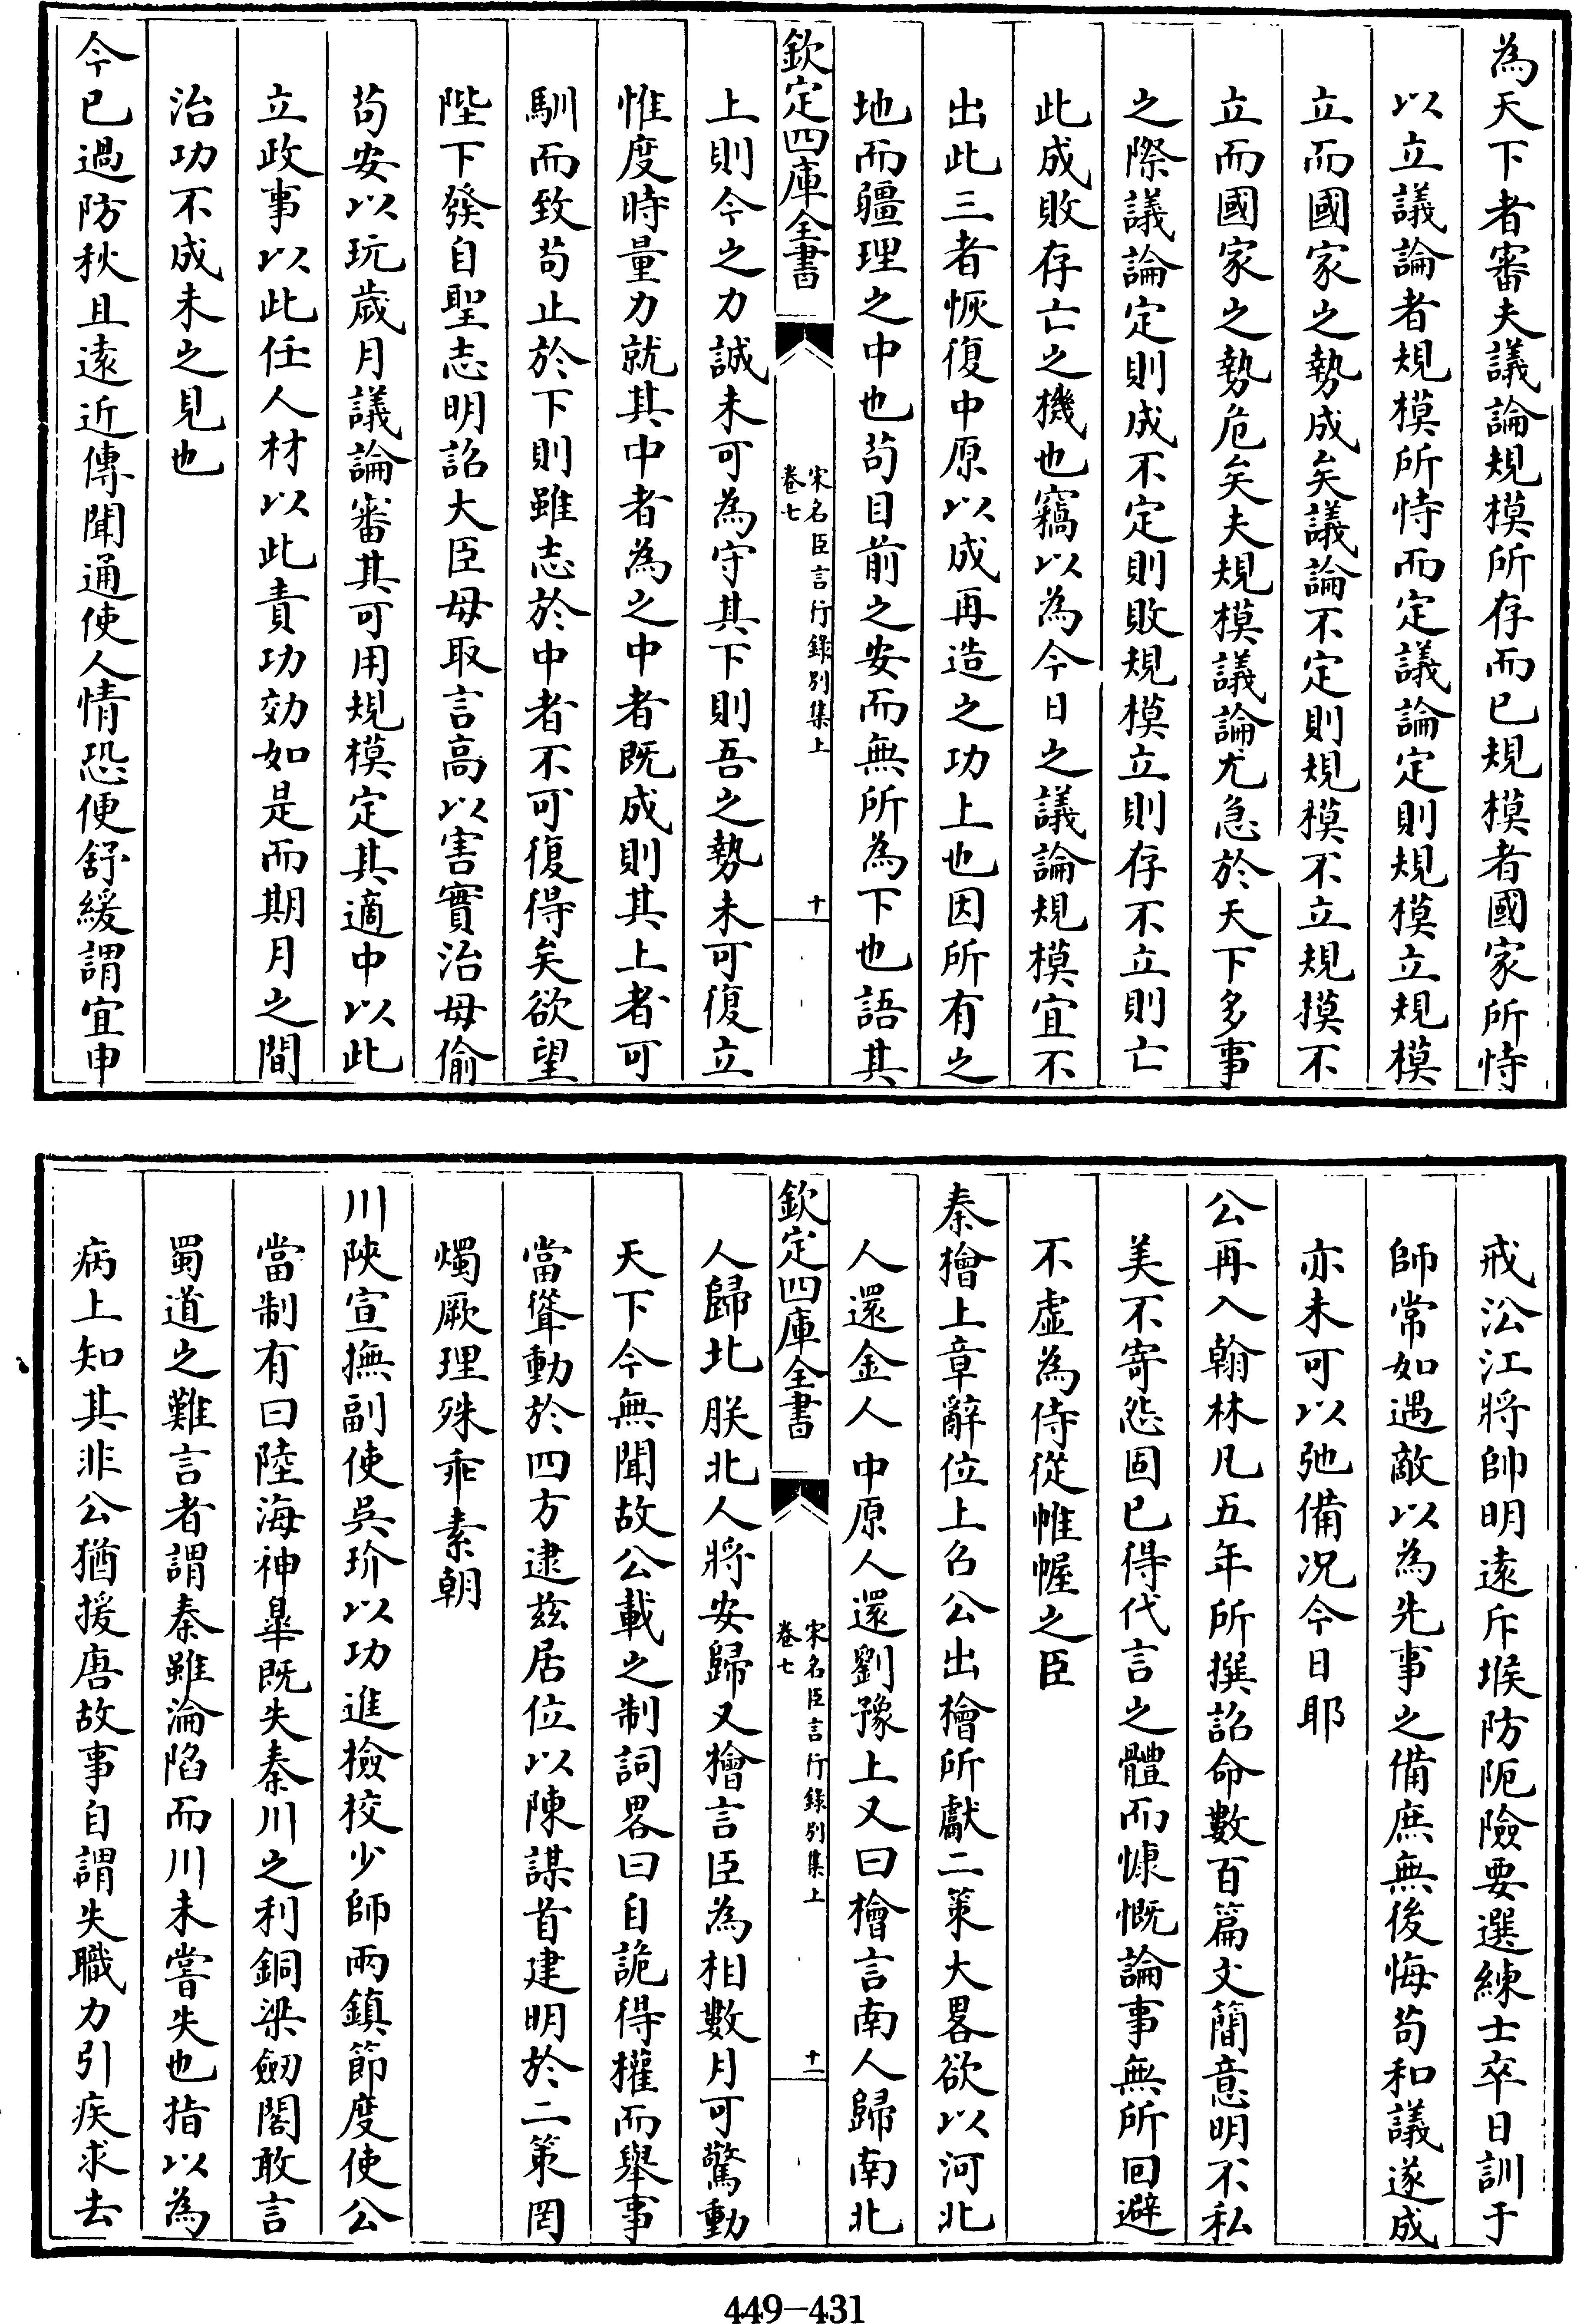 為天下者審夫議論規模所存而已規模者國家所恃
以立議論者規模所恃而定議論定則規模立規模
立而國家之勢成矣議論不定則規模不立規摸不
立而國家之勢危矣夫規模議論尤急於天下多事
之際議論定則成不定則敗規模立則存不立則亡
此成敗存亡之機也竊以為今日之議論規模宜不
出此三者恢復中原以成再造之功上也因所有之
地而疆理之中也苟目前之安而無所為下也語其
欽定四庫全書
宋名臣言行錄別集上
卷七
十
上則今之力誠未可為守其下則吾之勢未可復立
惟度時量力就其中者為之中者既成則其上者可
馴而致苟止於下則雖志於中者不可復得矣欲望
陛下發自聖志明詔大臣毋取言高以害實治毋偷
苟安以玩歲月議論審其可用規模定其適中以此
立政事以此任人材以此責功効如是而期月之間
治功不成未之見也
今已過防秋且遠近傳聞通使人情恐便舒緩謂宜申
戒㳂江將帥明遠斥堠防阨險要選練士卒日訓于
師常如遇敵以為先事之備庶無後悔苟和議遂成
亦未可以弛備况今日耶
公再入翰林凡五年所撰詔命數百篇文簡意明不私
美不寄怨固已得代言之體而慷慨論事無所回避
不虛為侍從帷幄之臣
秦檜上章辭位上召公出檜所獻二策大畧欲以河北
人還金人中原人還劉豫上又曰檜言南人歸南北
人歸北朕北人將安歸又檜言臣為相數月可驚動
天下今無聞故公載之制詞畧曰自詭得權而舉事
當聳動於四方逮兹居位以陳謀首建明於二策罔
燭厥理殊乖素朝
欽定四庫全書
宋名臣言行錄別集上
卷七
十一
川陝宣撫副使吳玠以功進檢校少師兩鎮節度使公
當制有曰陸海神臯既失秦川之利銅梁劒閣敢言
蜀道之難言者謂秦雖淪陷而川未嘗失也指以為
病上知其非公猶援唐故事自謂失職力引疾求去
449-431